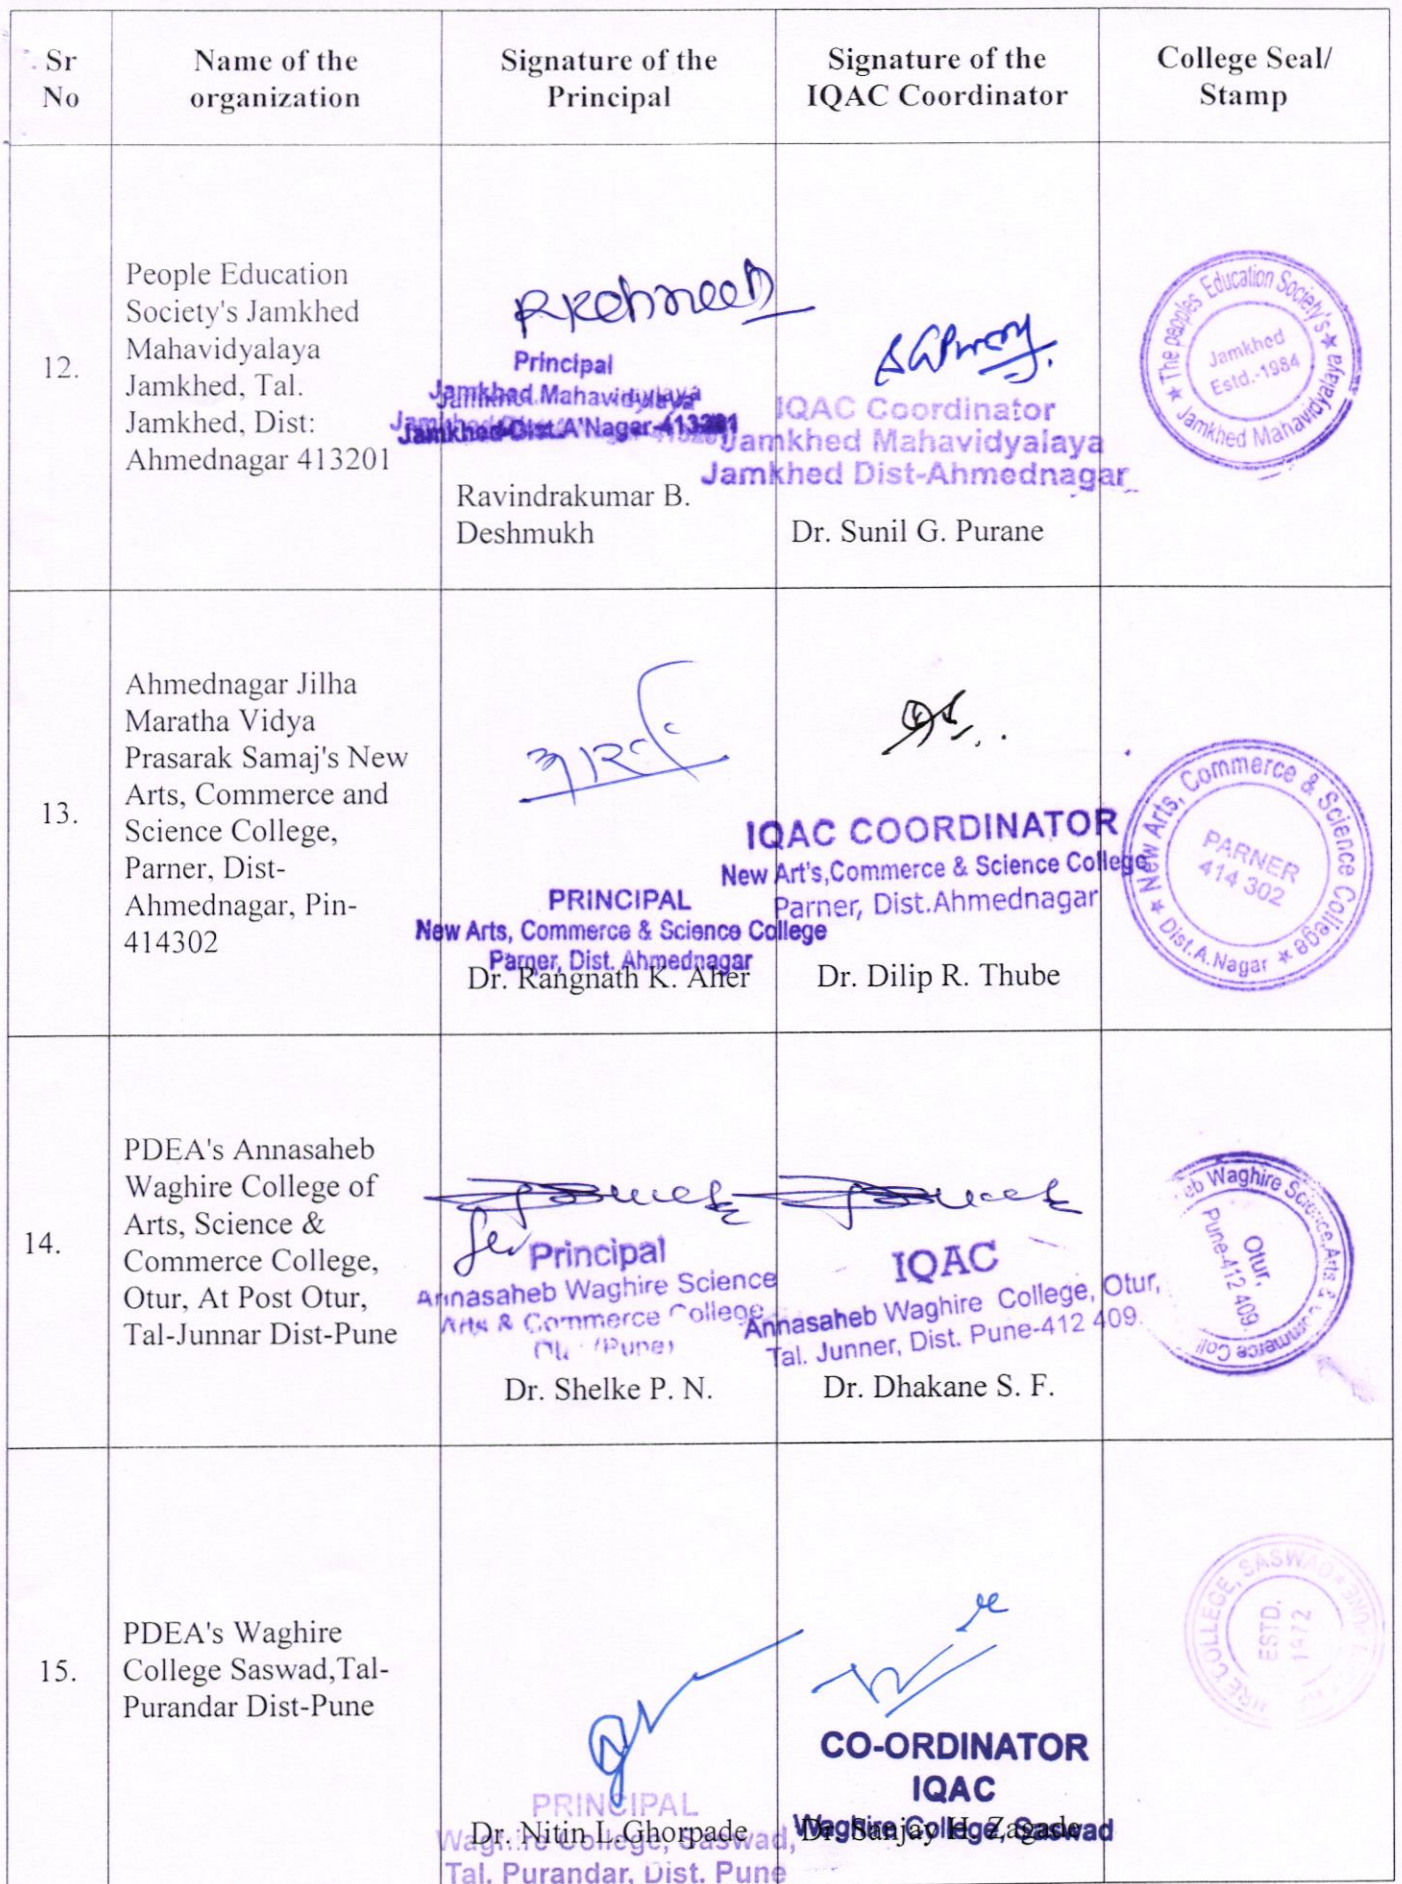 Sr
No
Name of the
organization
Signature of the
Principal
Signature of the
IQAC Coordinator
College Seal/
Stamp
12.
People Education
Society's Jamkhed
Mahavidyalaya
Jamkhed, Tal.
Jamkhed, Dist:
Ahmednagar 413201
Principal
Jamkhed Mahavidyalaya
Jamkhed Dist.A'Nagar-413201
Ravindrakumar B.
Deshmukh
IQAC Coordinator
Jamkhed Mahavidyalaya
Jamkhed Dist-Ahmednagar
Dr. Sunil G. Purane
The peoples Education Society's
Jamkhed Mahavidyalaya
Jamkhed
Estd.-1984
13.
Ahmednagar Jilha
Maratha Vidya
Prasarak Samaj's New
Arts, Commerce and
Science College,
Parner, Dist-
Ahmednagar, Pin-
414302
PRINCIPAL
New Arts, Commerce & Science College
Parner, Dist. Ahmednagar
Dr. Rangnath K. Aher
IQAC COORDINATOR
New Art's,Commerce & Science College
Parner, Dist.Ahmednagar
Dr. Dilip R. Thube
New Arts, Commerce & Science College
Dist.A.Nagar
PARNER
414 302
14.
PDEA's Annasaheb
Waghire College of
Arts, Science &
Commerce College,
Otur, At Post Otur,
Tal-Junnar Dist-Pune
Principal
Annasaheb Waghire Science
Arts & Commerce College
(Pune)
Dr. Shelke P. N.
IQAC
Annasaheb Waghire College, Otur,
Tal. Junner, Dist. Pune-412 409.
Dr. Dhakane S. F.
eb Waghire Science, Arts & Commerce Coll
Otur,
Pune-412 409
15.
PDEA's Waghire
College Saswad,Tal-
Purandar Dist-Pune
PRINCIPAL
Waghire College, Saswad,
Tal. Purandar, Dist. Pune
Dr. Nitin L.Ghorpade
CO-ORDINATOR
IQAC
Waghire College, Saswad
Dr. Sanjay H. Zagade
COLLEGE, SASWAD
ESTD.
1972